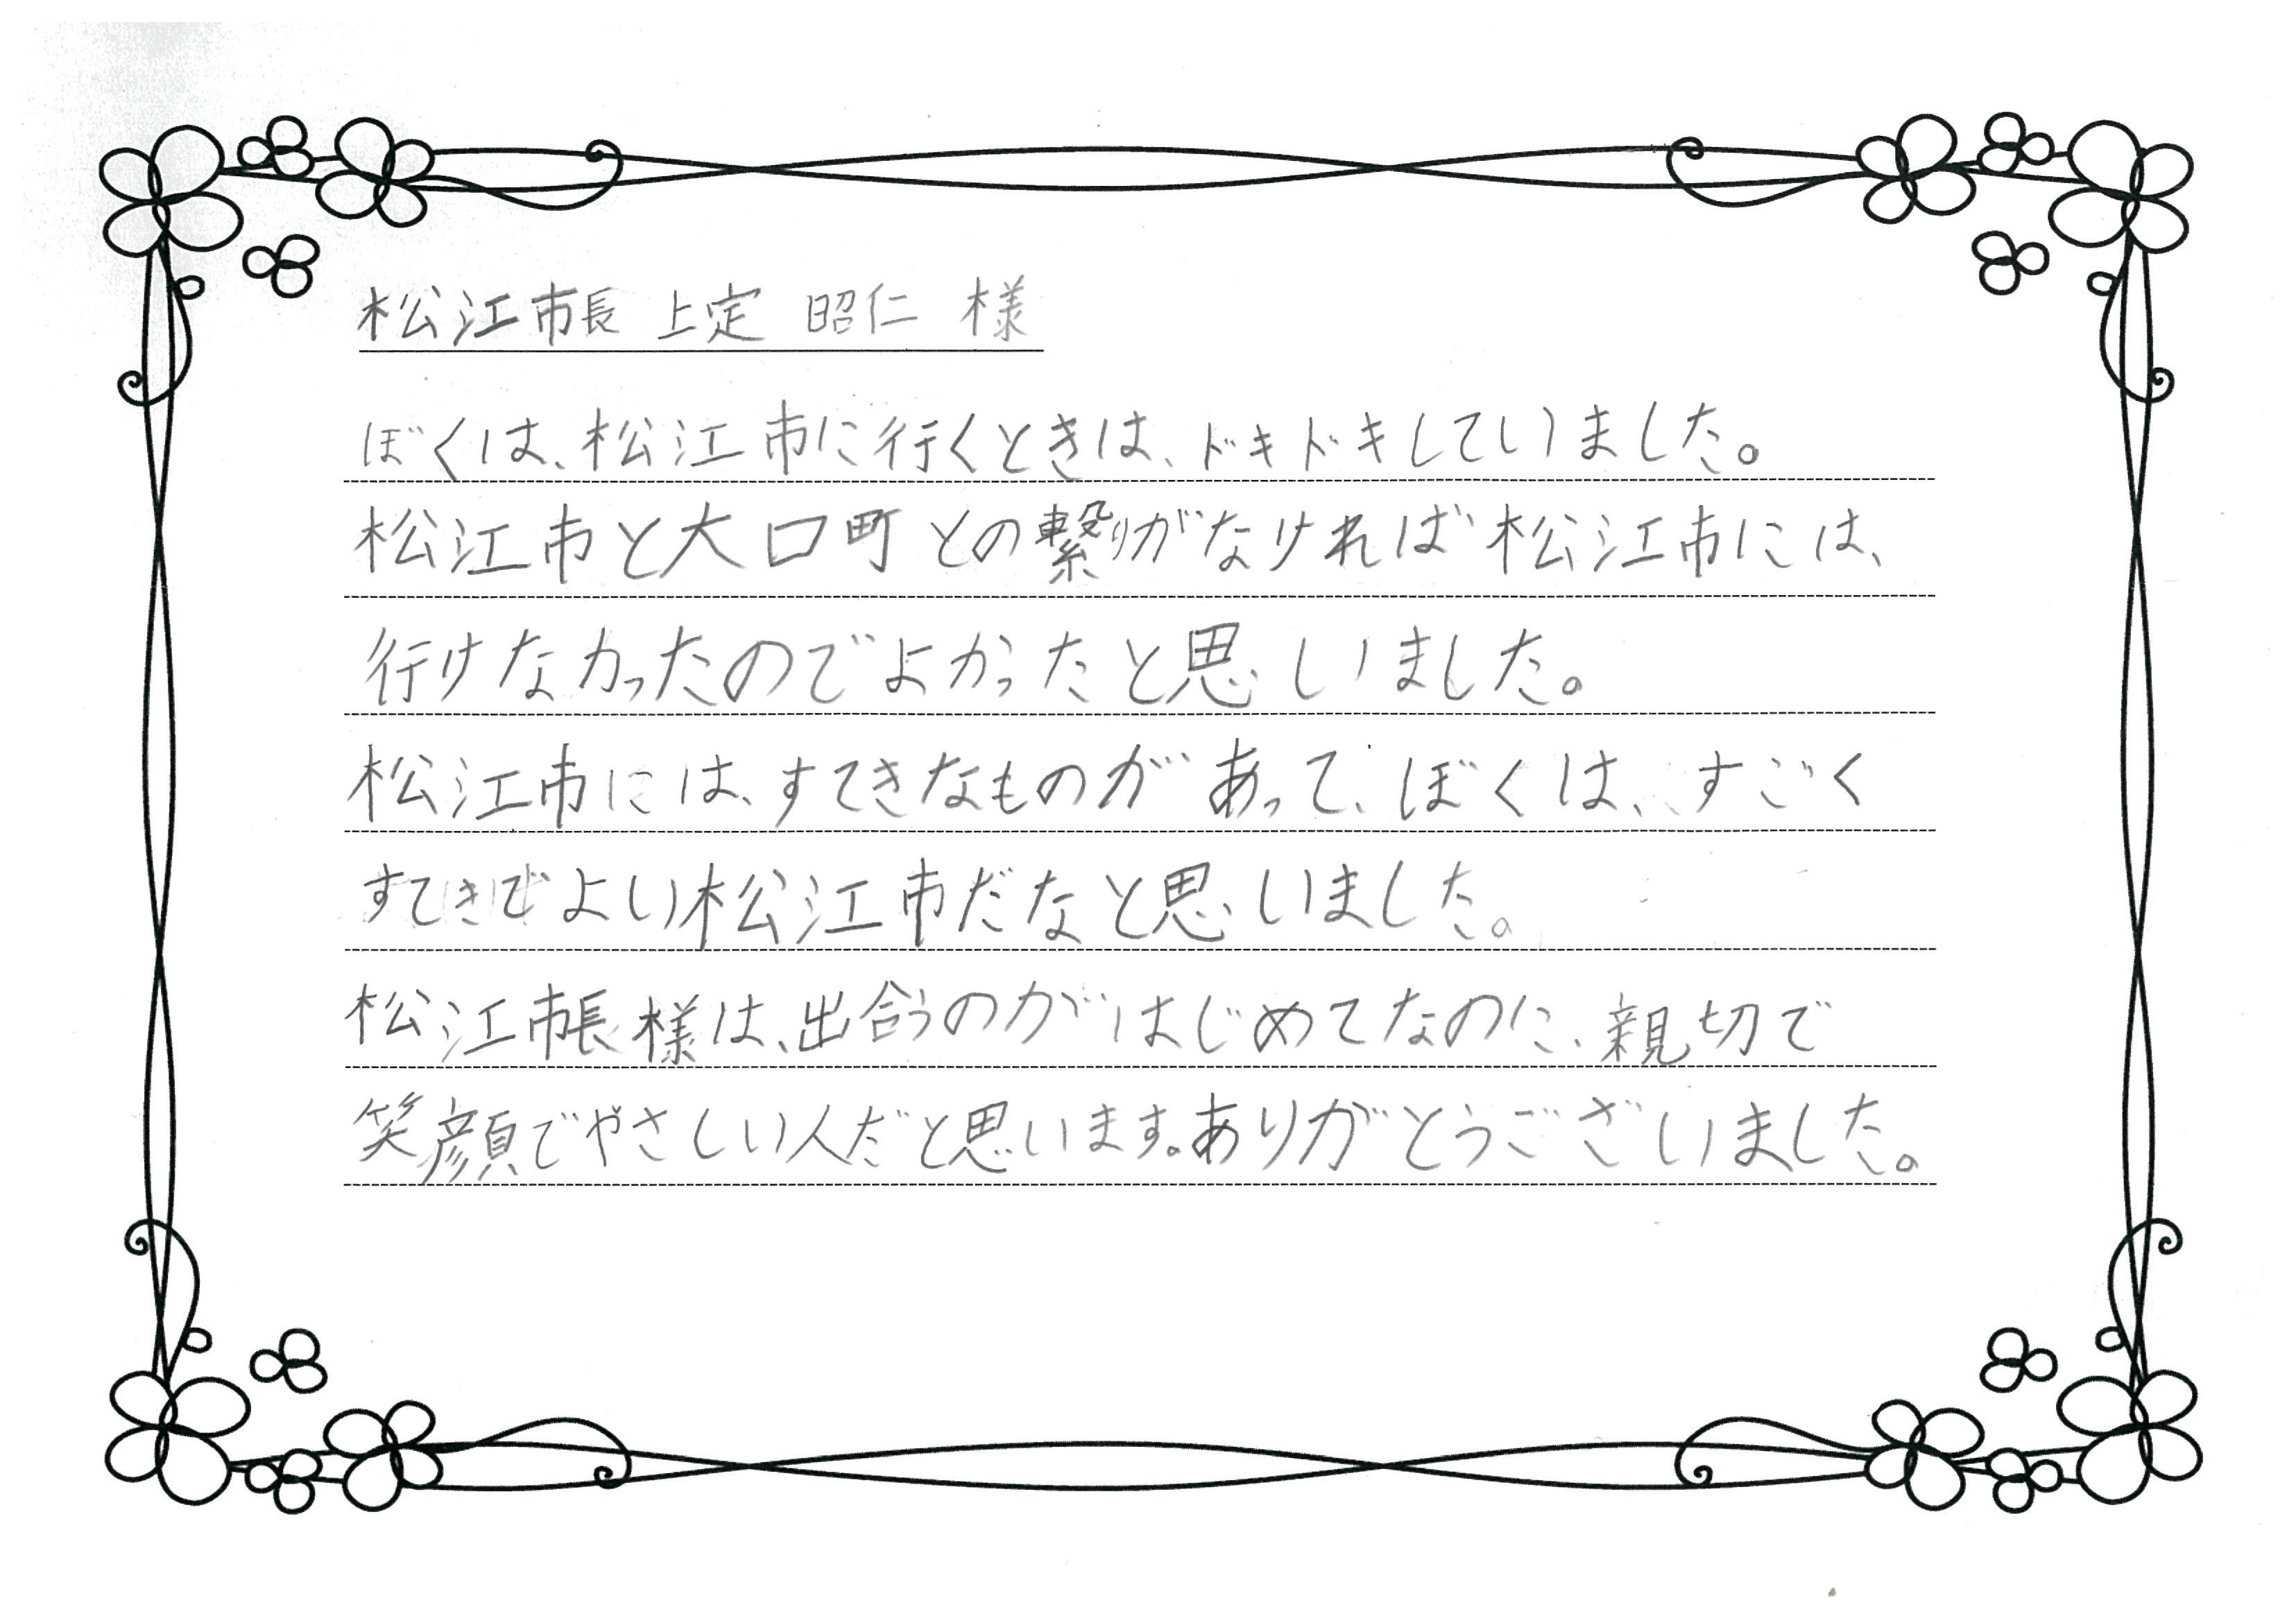 松江市長 上定 昭仁 様
ぼくは、松江市に行くときは、ドキドキしていました。
松江市と大口町との繋りがなければ松江市には、
行けなかったのでよかったと思いました。
松江市には、すてきなものがあって、ぼくは、すごく
すてきでよい松江市だなと思いました。
松江市長様は、出合うのがはじめてなのに、親切で
笑顔でやさしい人だと思います。ありがとうございました。